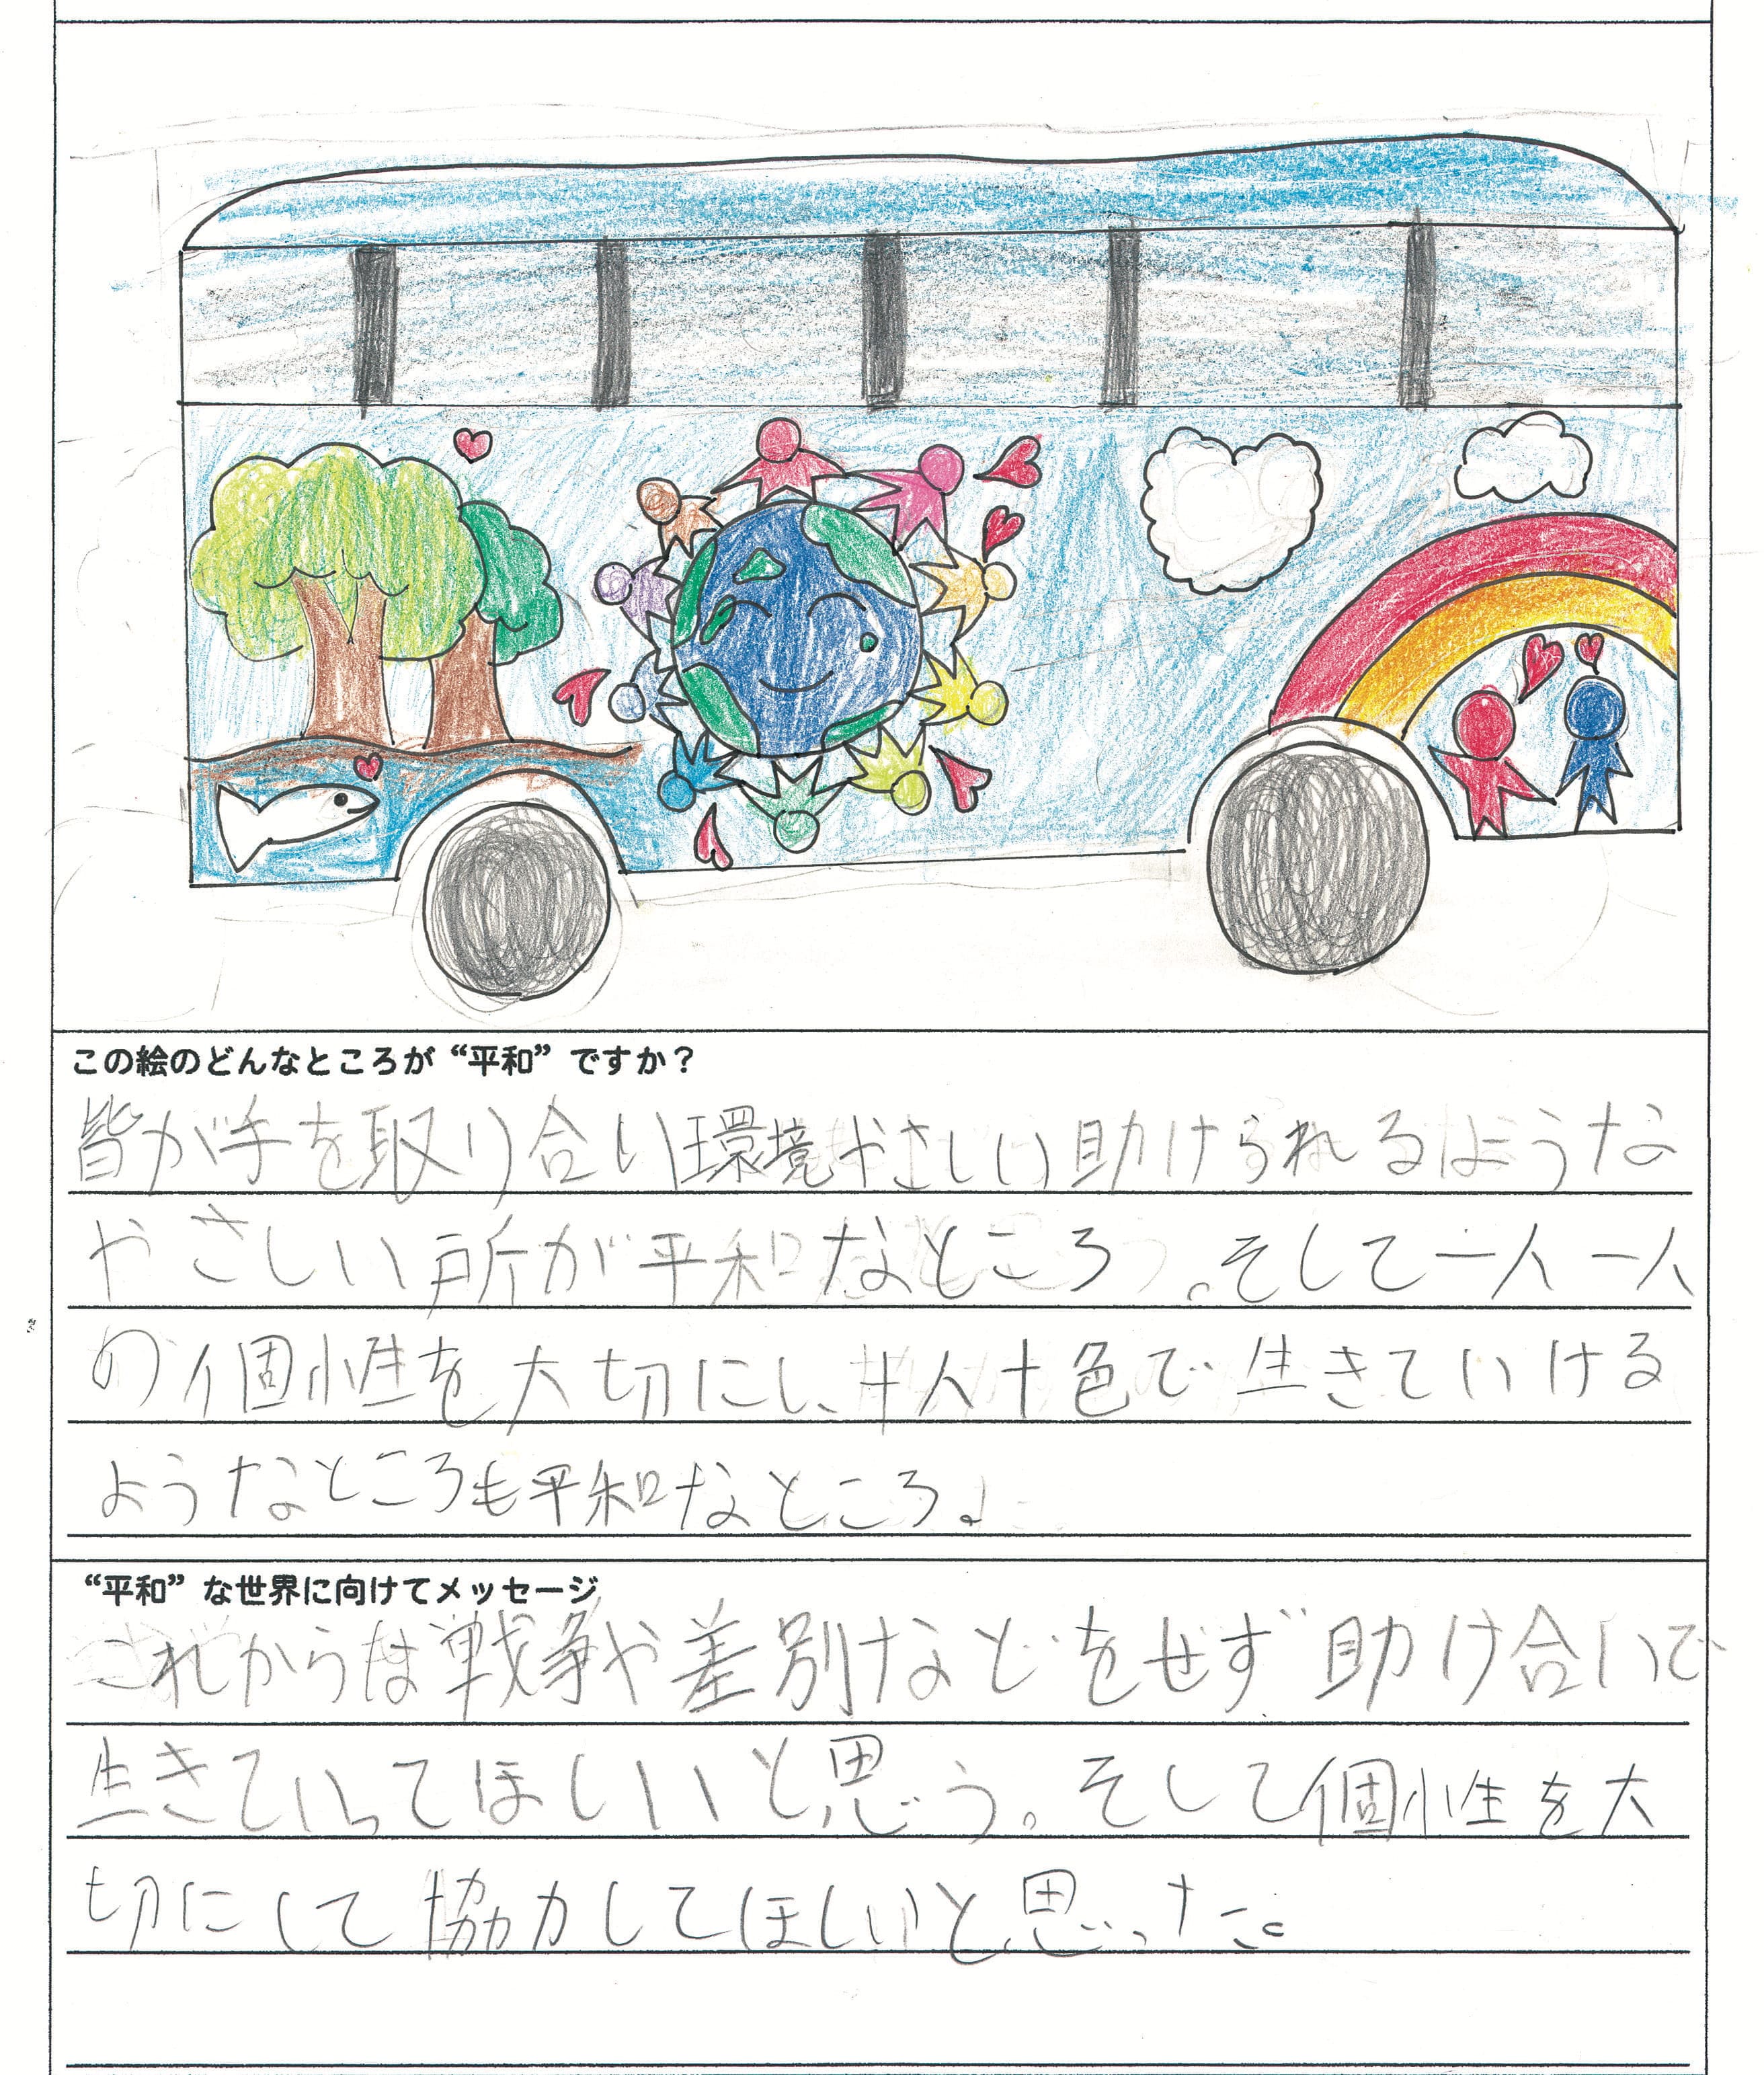 この絵のどんなところが“平和”ですか？
皆が手を取り合い環境やさしい助けられるような
やさしい所が平和なところ。そして一人一人
の個性を大切にし、十人十色で生きていける
ようなところも平和なところ。
“平和”な世界に向けてメッセージ
これからは戦争や差別などをせず助け合いで
生きていってほしいと思う。そして個性を大
切にして協力してほしいと思った。